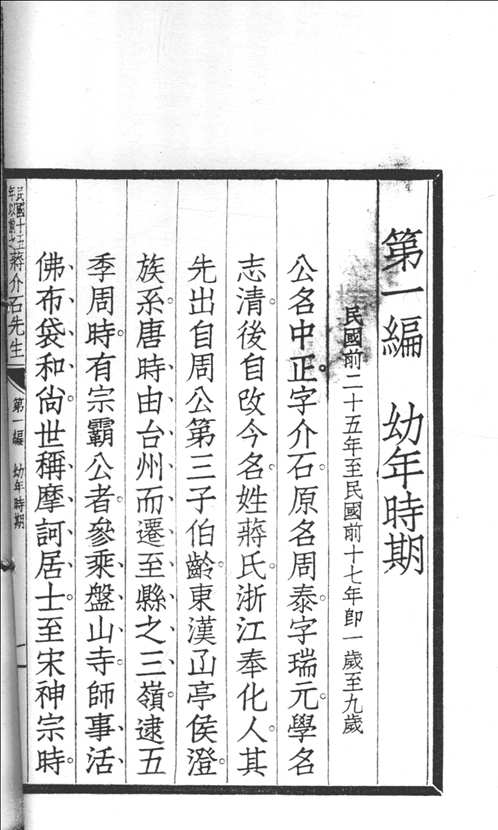 第一編　幼年時期
民國前二十五年至民國前十七年即一歲至九歲
公名中正字介石。原名周泰字瑞元。學名
志清。後自改今名。姓蔣氏。浙江奉化人。其
先出自周公第三子伯齡。東漢㓜亭侯澄
族系。唐時由台州而遷至縣之三嶺。逮五
季周時。有宗霸公者。參乘盤山寺。師事活
佛布袋和尙。世稱摩訶居士。至宋神宗時。
民國十五年以前之蔣介石先生
第一編　幼年時期
一